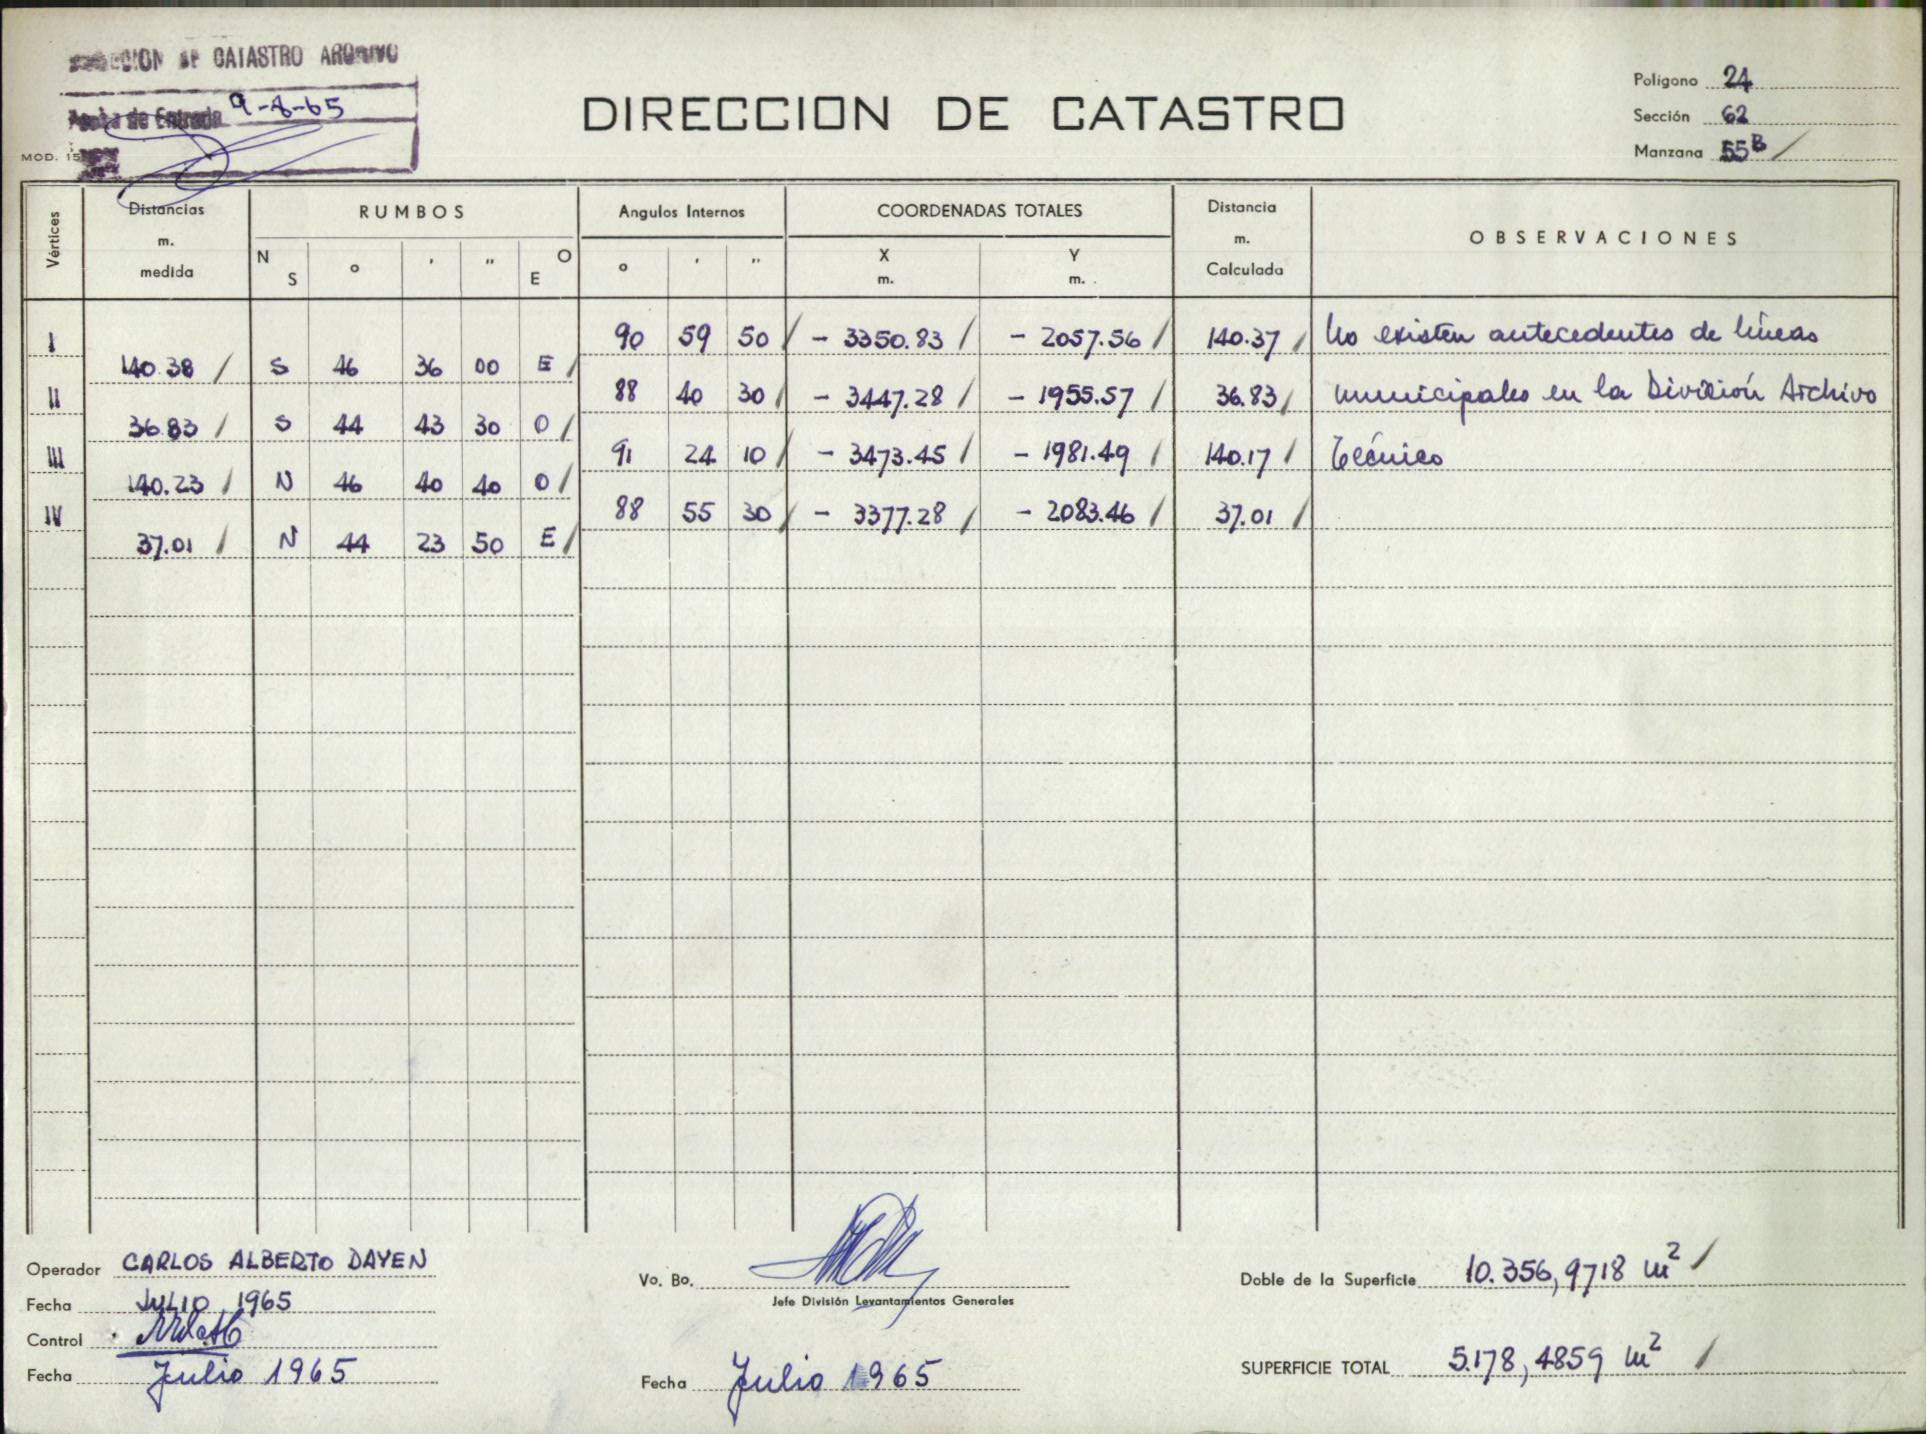 DIRECCION DE CATASTRO ARCHIVO
de Entrada 9-8-65
MOD. 15
DIRECCION DE CATASTRO
Polígono 24
Sección 62
Manzana 55B /
Vértices
Distancias m. medida
RUMBOS
N S ° ' " E O
Angulos Internos
° ' "
COORDENADAS TOTALES
X m.
Y m.
Distancia m. Calculada
OBSERVACIONES
I 90 59 50 / - 3350.83 / - 2057.56 / 140.37 / No existen antecedentes de líneas
140.38 / S 46 36 00 E /
II 88 40 30 / - 3447.28 / - 1955.57 / 36.83 / municipales en la División Archivo
36.83 / S 44 43 30 O /
III 91 24 10 / - 3473.45 / - 1981.49 / 140.17 / Técnico
140.23 / N 46 40 40 O /
IV 88 55 30 / - 3377.28 / - 2083.46 / 37.01 /
37.01 / N 44 23 50 E /
Operador CARLOS ALBERTO DAYEN
Fecha JULIO 1965
Control
Fecha Julio 1965
Vo. Bo.
Jefe División Levantamientos Generales
Fecha Julio 1965
Doble de la Superficie 10.356,9718 m² /
SUPERFICIE TOTAL 5.178,4859 m² /